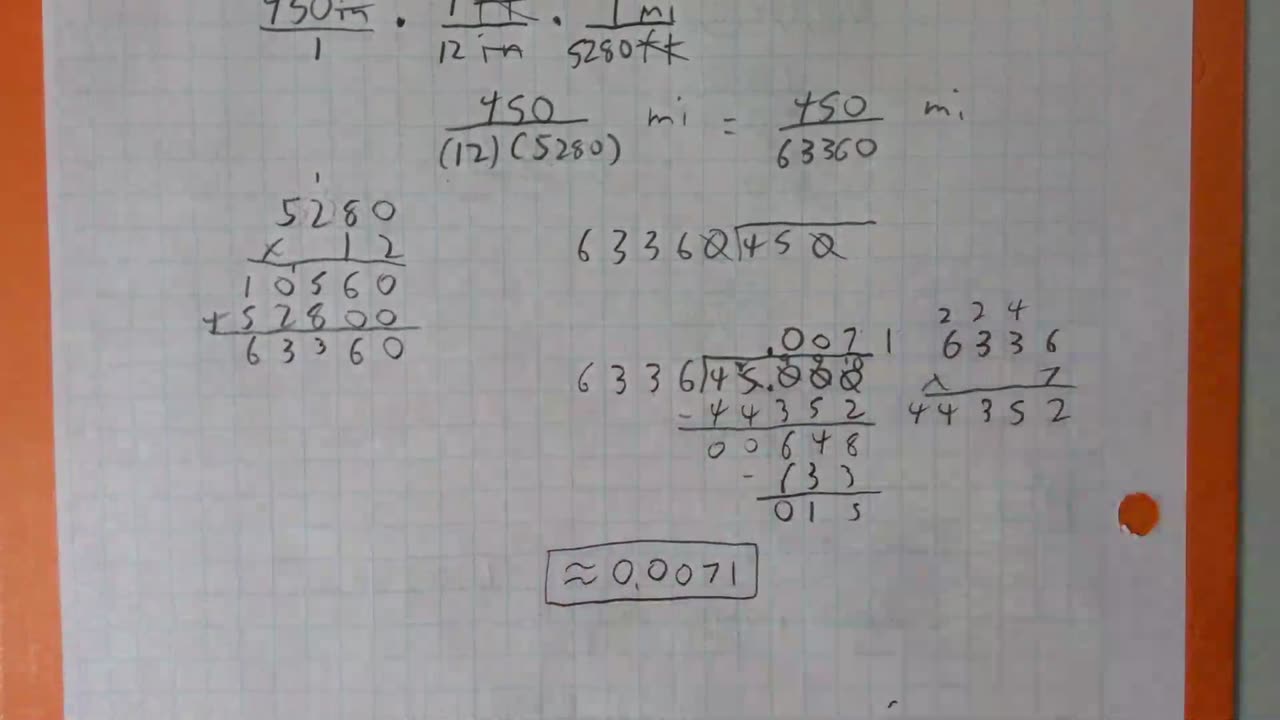 450 in / 1 · 1 ft / 12 in · 1 mi / 5280 ft
450 / (12)(5280) mi = 450 / 63360 mi
1
5280
x 12
1
10560
+ 52800
63360
63360 450
.0071
6336 45.000
- 44352
00648
- 633
015
2 2 4
6336
x 7
44352
≈ 0.0071